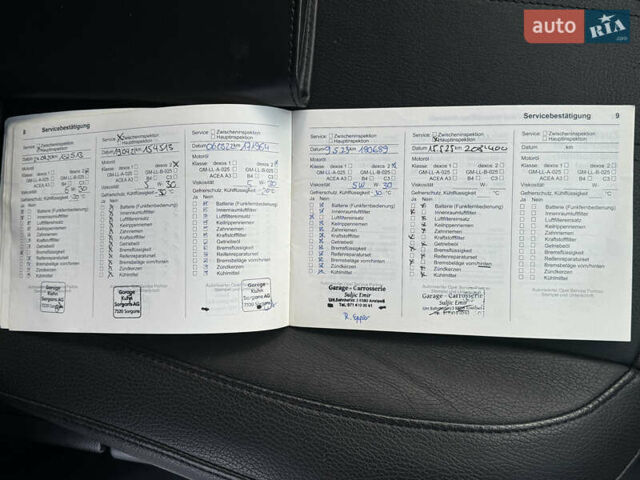 auto RIA .com
8 Servicebestätigung
Service: Zwischeninspektion
Hauptinspektion
Datum km 152513
Motoröl
Klasse: dexos 1 dexos 2
GM-LL-A-025 GM-LL-B-025
ACEA A3 B4 C3
Viskosität W- 30
Gefrierschutz, Kühlflüssigkeit -30 °C
Ja Nein
Batterie (Funkfernbedienung)
Innenraumluftfilter
Luftfiltereinsatz
Keilrippenriemen
Zahnriemen
Kraftstofffilter
Getriebeöl
Bremsflüssigkeit
Reifenreparaturset
Bremsbeläge vorn/hinten
Zündkerzen
Kühlmittel
Garage
Kuhn
Sargans AG
7320 Sargans
Service: Zwischeninspektion
Hauptinspektion
Datum km 154513
Motoröl
Klasse: dexos 1 dexos 2
GM-LL-A-025 GM-LL-B-025
ACEA A3 B4 C3
Viskosität 5 W- 30
Gefrierschutz, Kühlflüssigkeit °C
Ja Nein
Batterie (Funkfernbedienung)
Innenraumluftfilter
Luftfiltereinsatz
Keilrippenriemen
Zahnriemen
Kraftstofffilter
Getriebeöl
Bremsflüssigkeit
Reifenreparaturset
Bremsbeläge vorn/hinten
Zündkerzen
Kühlmittel
Autorisierter Opel Service Partner
Garage
Kuhn
Sargans AG
7320 Sargans
Service: Zwischeninspektion
Hauptinspektion
Datum km 171964
Motoröl
Klasse: dexos 1 dexos 2
GM-LL-A-025 GM-LL-B-025
ACEA A3 B4 C3
Viskosität W- 30
Gefrierschutz, Kühlflüssigkeit -30 °C
Ja Nein
Batterie (Funkfernbedienung)
Innenraumluftfilter
Luftfiltereinsatz
Keilrippenriemen
Zahnriemen
Kraftstofffilter
Getriebeöl
Bremsflüssigkeit
Reifenreparaturset
Bremsbeläge vorn/hinten
Zündkerzen
Kühlmittel
Autorisierter Opel Service Partner
Garage
Kuhn
Sargans AG
7320 Sargans
Servicebestätigung 9
Service: Zwischeninspektion
Hauptinspektion
Datum 9.5.23 km 190689
Motoröl
Klasse: dexos 1 dexos 2
GM-LL-A-025 GM-LL-B-025
ACEA A3 B4 C3
Viskosität 5W W- 30
Gefrierschutz, Kühlflüssigkeit -30 °C
Ja Nein
Batterie (Funkfernbedienung)
Innenraumluftfilter
Luftfiltereinsatz
Keilrippenriemen
Zahnriemen
Kraftstofffilter
Getriebeöl
Bremsflüssigkeit
Reifenreparaturset
Bremsbeläge vorn/hinten
Zündkerzen
Kühlmittel
Garage - Carrosserie
Suljic Emir
Service: Zwischeninspektion
Hauptinspektion
Datum km 208400
Motoröl
Klasse: dexos 1 dexos 2
GM-LL-A-025 GM-LL-B-025
ACEA A3 B4 C3
Viskosität W-
Gefrierschutz, Kühlflüssigkeit °C
Ja Nein
Batterie (Funkfernbedienung)
Innenraumluftfilter
Luftfiltereinsatz
Keilrippenriemen
Zahnriemen
Kraftstofffilter
Getriebeöl
Bremsflüssigkeit
Reifenreparaturset
Bremsbeläge vorn/hinten
Zündkerzen
Kühlmittel
Autorisierter Opel Service Partner
Garage - Carrosserie
Suljic Emir
Service: Zwischeninspektion
Hauptinspektion
Datum km
Motoröl
Klasse: dexos 1 dexos 2
GM-LL-A-025 GM-LL-B-025
ACEA A3 B4 C3
Viskosität W-
Gefrierschutz, Kühlflüssigkeit °C
Ja Nein
Batterie (Funkfernbedienung)
Innenraumluftfilter
Luftfiltereinsatz
Keilrippenriemen
Zahnriemen
Kraftstofffilter
Getriebeöl
Bremsflüssigkeit
Reifenreparaturset
Bremsbeläge vorn/hinten
Zündkerzen
Kühlmittel
Autorisierter Opel Service Partner
Stempel und Unterschrift